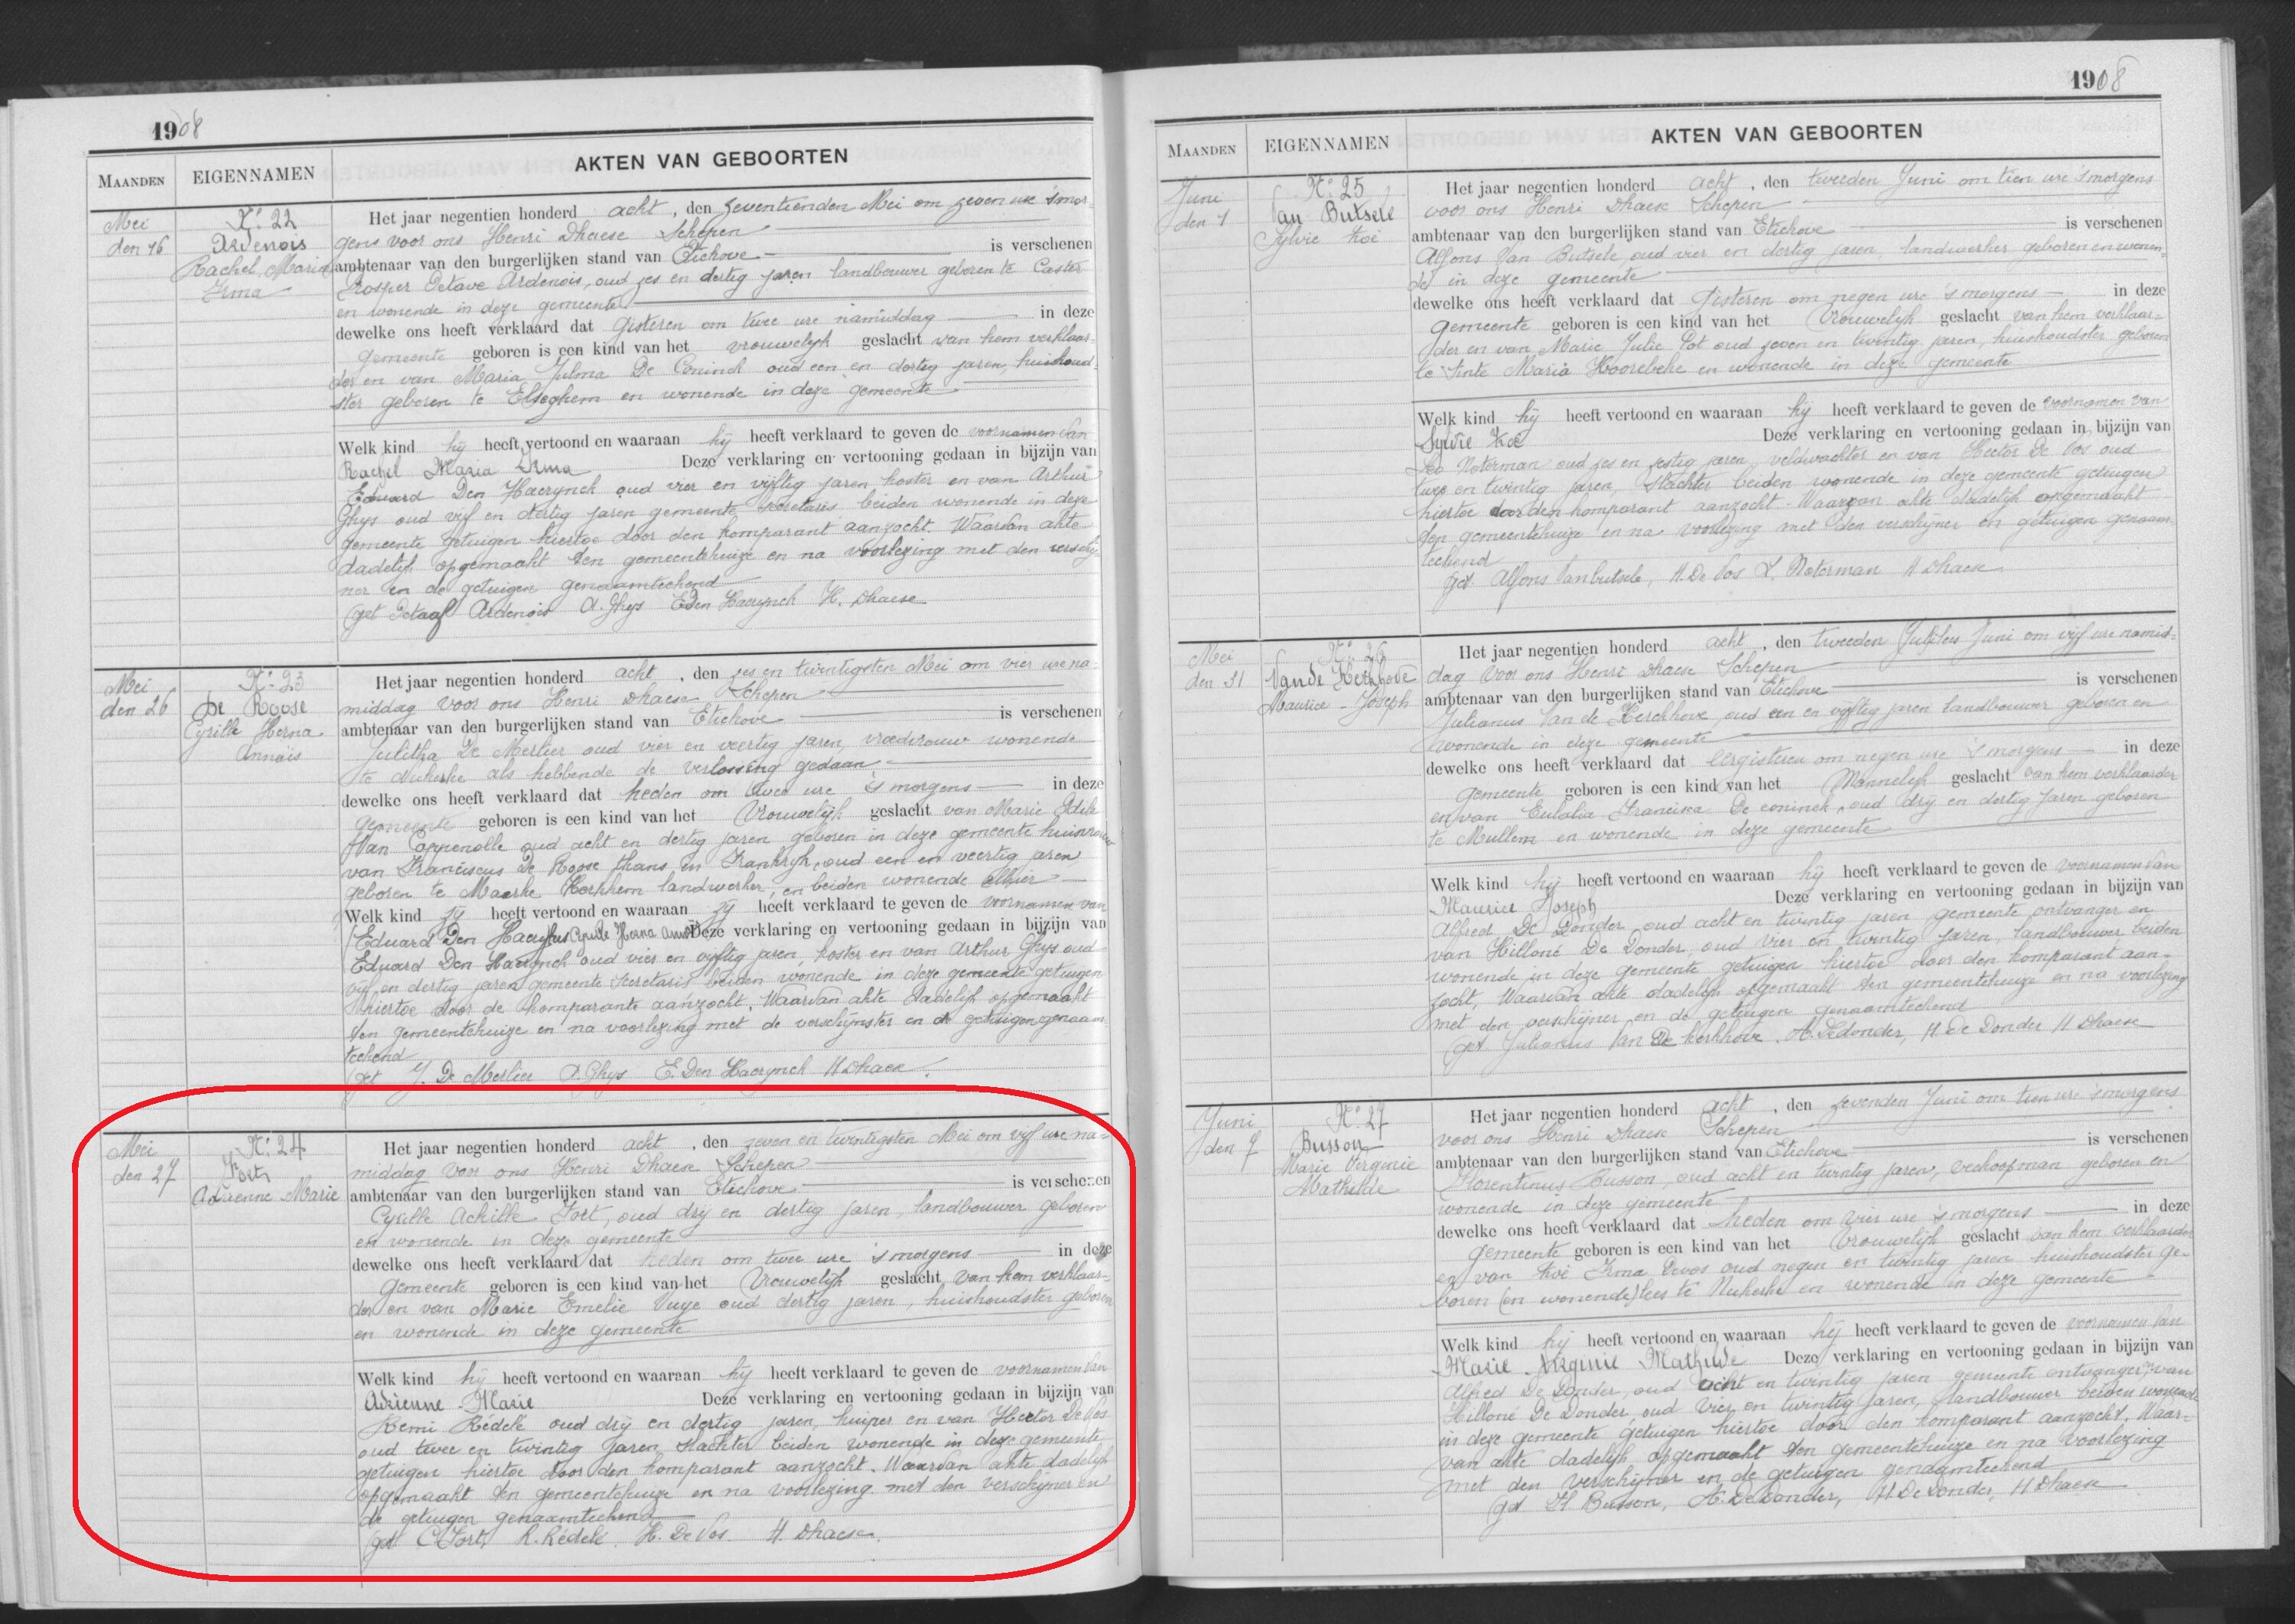 1908
MAANDEN EIGENNAMEN AKTEN VAN GEBOORTEN
Mei
den 16
N° 22
Ardenois
Rachel Maria
Irma
Het jaar negentien honderd acht, den zeventienden Mei om zeven ure 'smor-
gens voor ons Henri Dhaese Schepen
ambtenaar van den burgerlijken stand van Etichove is verschenen
Prosper Octave Ardenois, oud zes en dertig jaren landbouwer geboren te Caster
en wonende in deze gemeente
dewelke ons heeft verklaard dat gisteren om twee ure namiddag in deze
gemeente geboren is een kind van het vrouwelijk geslacht van hem verklaar-
der en van Maria Julma De Coninck oud een en dertig jaren, huishoud-
ster geboren te Elseghem en wonende in deze gemeente
Welk kind hij heeft vertoond en waaraan hij heeft verklaard te geven de voornamen van
Rachel Maria Irma Deze verklaring en vertooning gedaan in bijzijn van
Eduard Den Haerynck oud vier en vijftig jaren koster en van Arthur
Ghys oud vijf en dertig jaren gemeente secretaris beiden wonende in deze
gemeente getuigen hiertoe door den komparant aanzocht. Waarvan akte
dadelijk opgemaakt ten gemeentehuize en na voorlezing met den verschij-
ner en de getuigen genaamteekend
(get Octaaf Ardenois A. Ghys E Den Haerynck H. Dhaese
Mei
den 26
N° 23
De Roose
Cyrille Herna
Annaïs
Het jaar negentien honderd acht, den zes en twintigsten Mei om vier ure na-
middag voor ons Henri Dhaese Schepen
ambtenaar van den burgerlijken stand van Etichove is verschenen
Julitha De Merlier oud vier en veertig jaren, vroedvrouw wonende
te Nukerke als hebbende de verlossing gedaan
dewelke ons heeft verklaard dat heden om twee ure 's morgens in deze
gemeente geboren is een kind van het Vrouwelijk geslacht van Marie Odile
Van Coppenolle oud acht en dertig jaren geboren in deze gemeente huisvrouw
van Franciscus De Roose thans in Frankrijk, oud een en veertig jaren
geboren te Maerke Kerkhem landwerker, en beiden wonende alhier
Welk kind zij heeft vertoond en waaraan zij heeft verklaard te geven de voornamen van
Eduard Den Haerynck Cyrille Herna Annaïs Deze verklaring en vertooning gedaan in bijzijn van
Eduard Den Haerynck oud vier en vijftig jaren, koster en van Arthur Ghys oud
vijf en dertig jaren gemeente secretaris beiden wonende in deze gemeente getuigen
hiertoe door de komparante aanzocht. Waarvan akte dadelijk opgemaakt
ten gemeentehuize en na voorlezing met de verschijnster en de getuigen genaam-
teekend
(get J. De Merlier A. Ghys E. Den Haerynck H Dhaese
Mei
den 27
N° 24
Fort
Adrienne Marie
Het jaar negentien honderd acht, den zeven en twintigsten Mei om vijf ure na-
middag voor ons Henri Dhaese Schepen
ambtenaar van den burgerlijken stand van Etichove is verschenen
Cyrille Achille Fort, oud drij en dertig jaren, landbouwer geboren
en wonende in deze gemeente
dewelke ons heeft verklaard dat heden om twee ure 's morgens in deze
gemeente geboren is een kind van het Vrouwelijk geslacht van hem verklaar-
der en van Marie Emelie Vuye oud dertig jaren, huishoudster geboren
en wonende in deze gemeente
Welk kind hij heeft vertoond en waaraan hij heeft verklaard te geven de voornamen van
Adrienne Marie Deze verklaring en vertooning gedaan in bijzijn van
Remi Redelé oud drij en dertig jaren, kuiper en van Hector De Vos
oud twee en twintig jaren, slachter beiden wonende in deze gemeente
getuigen hiertoe door den komparant aanzocht. Waarvan akte dadelijk
opgemaakt ten gemeentehuize en na voorlezing met den verschijner en
de getuigen genaamteekend
(get C. Fort, R. Redelé, H. De Vos. H. Dhaese
1908
MAANDEN EIGENNAMEN AKTEN VAN GEBOORTEN
Juni
den 1
N° 25
Van Butsele
Sylvie Zoé
Het jaar negentien honderd acht, den tweeden Juni om tien ure 'smorgens
voor ons Henri Dhaese Schepen
ambtenaar van den burgerlijken stand van Etichove is verschenen
Alfons Van Butsele, oud vier en dertig jaren, landwerker geboren en wonen-
de in deze gemeente
dewelke ons heeft verklaard dat gisteren om negen ure 's morgens in deze
gemeente geboren is een kind van het Vrouwelijk geslacht van hem verklaar-
der en van Marie Julie Pot oud zeven en twintig jaren, huishoudster geboren
te Sinte Maria Hoorebeke en wonende in deze gemeente
Welk kind hij heeft vertoond en waaraan hij heeft verklaard te geven de voornamen van
Sylvie Zoé Deze verklaring en vertooning gedaan in bijzijn van
Leo Noterman oud zes en zestig jaren, veldwachter en van Hector De Vos oud
twee en twintig jaren, slachter beiden wonende in deze gemeente getuigen
hiertoe door den komparant aanzocht. Waarvan akte dadelijk opgemaakt
ten gemeentehuize en na voorlezing met den verschijner en getuigen genaam-
teekend
get. Alfons Vanbutsele, H. De Vos L. Noterman H Dhaese
Mei
den 31
N° 26
Van de Kerkhove
Maurice Joseph
Het jaar negentien honderd acht, den tweeden Juni om vijf ure namid-
dag voor ons Henri Dhaese Schepen
ambtenaar van den burgerlijken stand van Etichove is verschenen
Julianus Van de Kerckhove, oud een en vijftig jaren landbouwer geboren en
wonende in deze gemeente
dewelke ons heeft verklaard dat eergisteren om negen ure 's morgens in deze
gemeente geboren is een kind van het Mannelijk geslacht van hem verklaarder
en van Eulalia Francisca De coninck, oud drij en dertig jaren geboren
te Mullem en wonende in deze gemeente
Welk kind hij heeft vertoond en waaraan hij heeft verklaard te geven de voornamen van
Maurice Joseph Deze verklaring en vertooning gedaan in bijzijn van
Alfred De Donder, oud acht en twintig jaren, gemeente ontvanger en
van Hilloné De Donder, oud vier en twintig jaren, landbouwer beiden
wonende in deze gemeente getuigen hiertoe door den komparant aan-
zocht. Waarvan akte dadelijk opgemaakt ten gemeentehuize en na voorlezing
met den verschijner en de getuigen genaamteekend
(get. Julianus Van De Kerkhove. A. Dedonder, H. De Donder H Dhaese
Juni
den 7
N° 27
Busson
Marie Virginie
Mathilde
Het jaar negentien honderd acht, den zevenden Juni om tien ure 'smorgens
voor ons Henri Dhaese Schepen
ambtenaar van den burgerlijken stand van Etichove is verschenen
Florentinus Busson, oud acht en twintig jaren, veekoopman geboren en
wonende in deze gemeente
dewelke ons heeft verklaard dat heden om vier ure 's morgens in deze
gemeente geboren is een kind van het Vrouwelijk geslacht van hem verklaarder
en van Zoé Irma Devos oud negen en twintig jaren huishoudster ge-
boren (en wonende) lees te Nukerke en wonende in deze gemeente
Welk kind hij heeft vertoond en waaraan hij heeft verklaard te geven de voornamen van
Marie Virginie Mathilde Deze verklaring en vertooning gedaan in bijzijn van
Alfred De Donder, oud acht en twintig jaren gemeente ontvanger, en van
Hilloné De Donder, oud vier en twintig jaren, landbouwer beiden wonende
in deze gemeente getuigen hiertoe door den komparant aanzocht. Waar-
van akte dadelijk opgemaakt ten gemeentehuize en na voorlezing
met den verschijner en de getuigen genaamteekend
(get Fl Busson, A. De Donder, H De Donder, H Dhaese